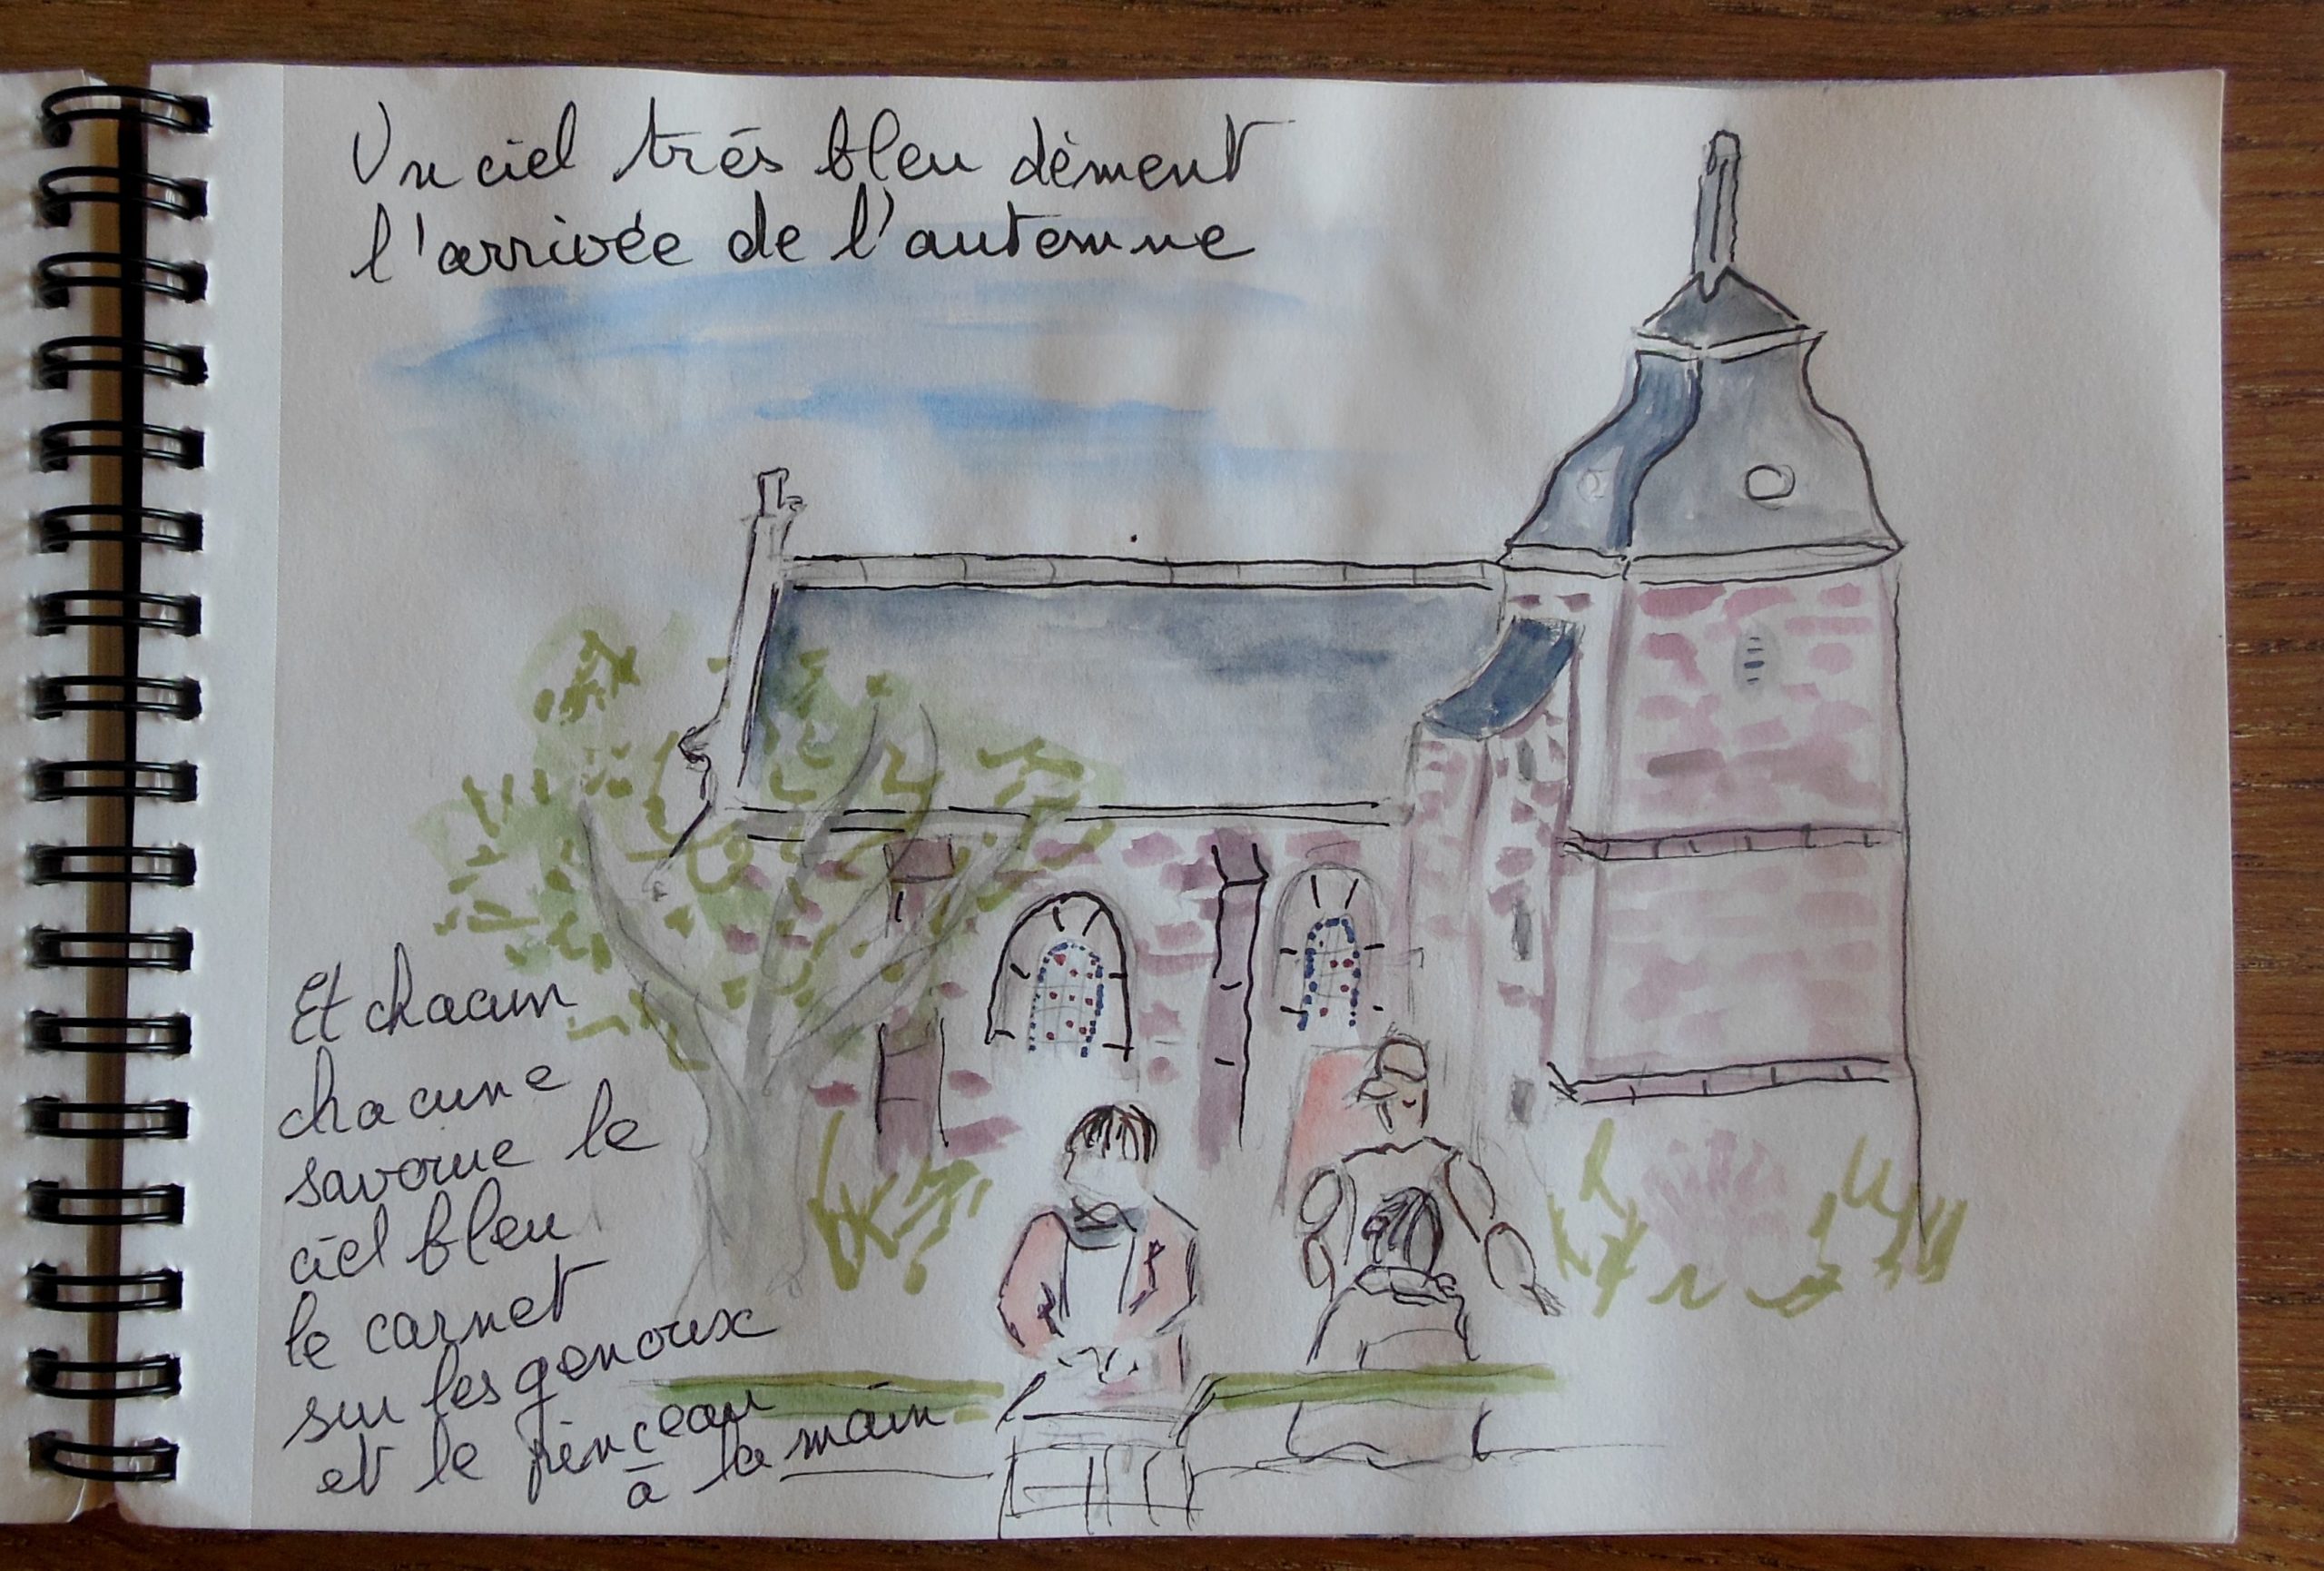 Un ciel très bleu dément
l'arrivée de l'automne
Et chacun
chacune
savoure le
ciel bleu
le carnet
sur les genoux
et le pinceau
à la main